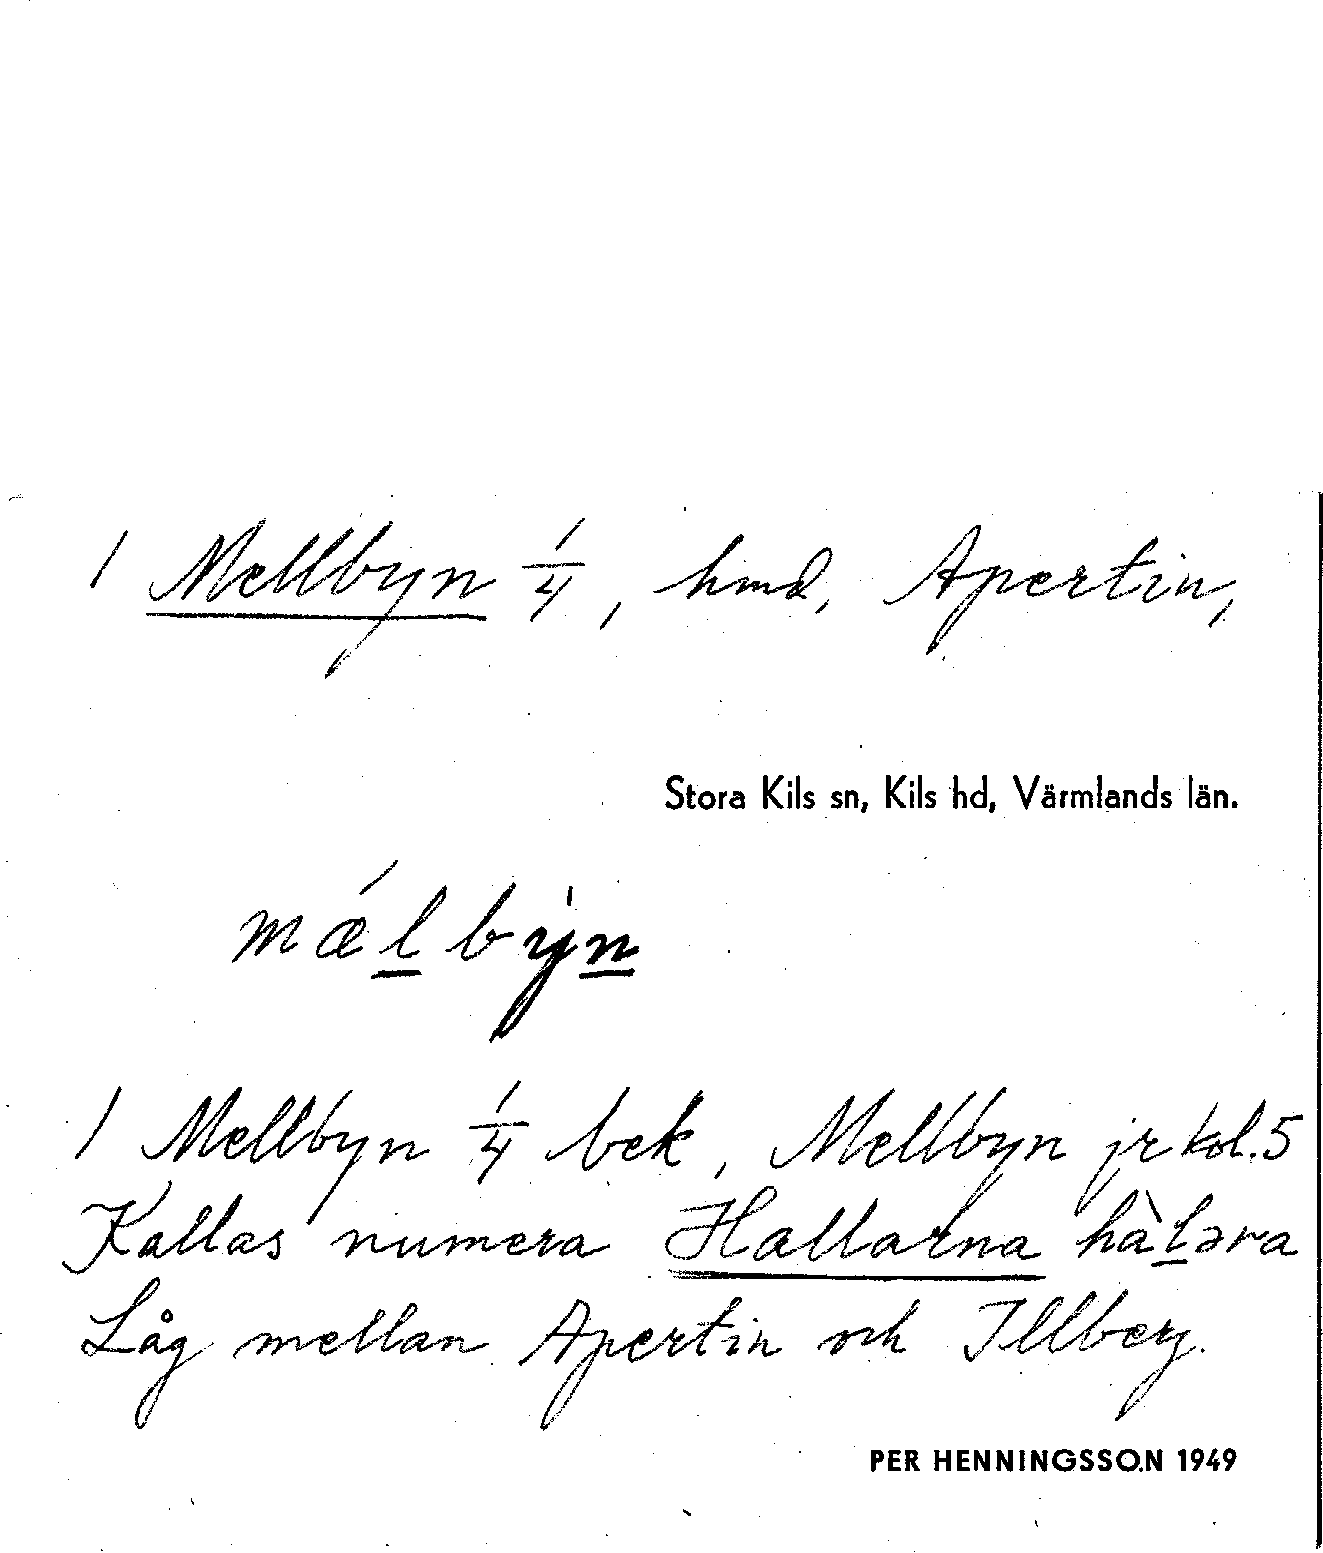 1 Mellbyn 1/4, hmd, Apertin,
Stora Kils sn, Kils hd, Värmlands län.
mǽlby̍n
1 Mellbyn 1/4 bek, Mellbyn jr kol.5
Kallas numera Hallarna hàləra
Låg mellan Apertin och Illberg.
PER HENNINGSSON 1949